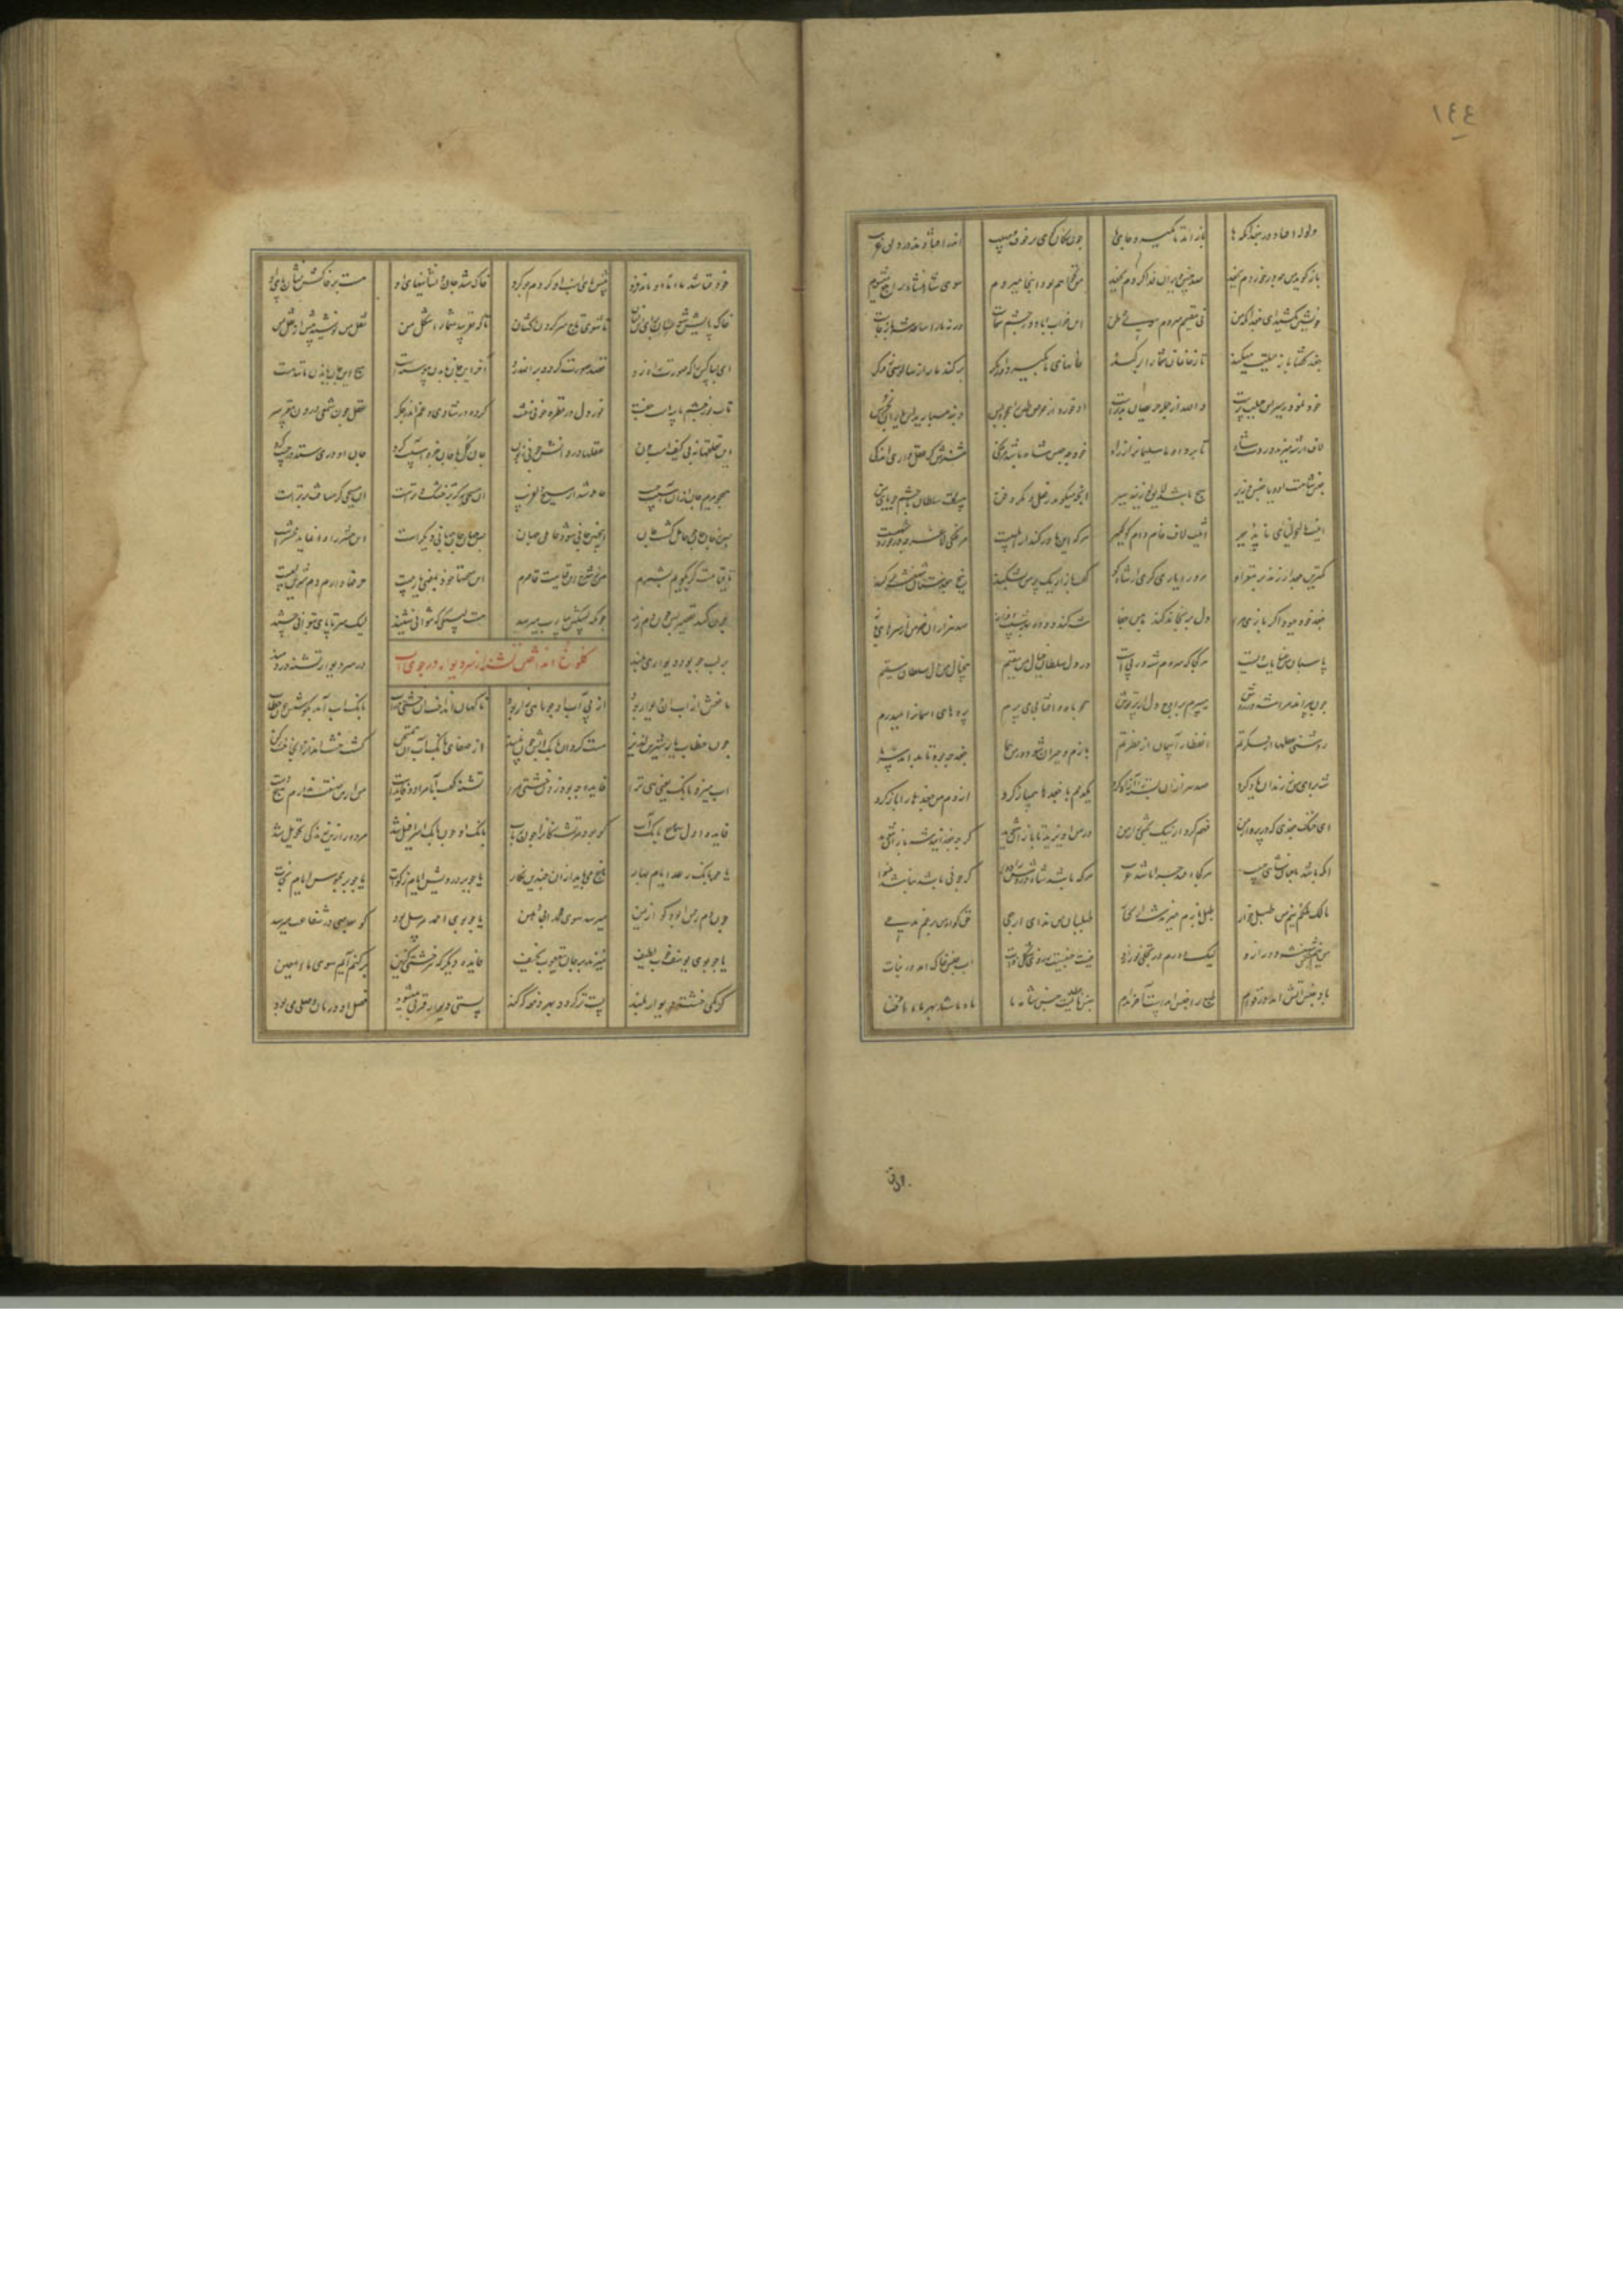 ١٤٤
ولوله افتاد در جغدان که ها باز آمد تا بگیرد جای ما چون سگان کوی پر خوف و مهیب اندر افتادند در دلق غریب
باز گوید من چه در خوردم بجغد صد چنین ویران فدا کردم بجغد من نخواهم بود اینجا میروم سوی شاهنشاه راجع میشوم
خویشتن مکشید ای جغدان که من نی مقیمم میروم سوی وطن این خراب اباد در چشم شماست ورنه ما را ساعد شه باز جاست
جغد گفتا باز حیلت میکند تا ز خان و مان شما را بر کند خانهای ما بگیرد او بمکر بر کند ما را بسالوسی ز وکر
والله از جمله حریصان بدترست او خورد از حرص طین را همچو دبس دنبه مسپارید ای یاران بخرس
لاف از شه میزند وز دست شاه تا برد او ما سلیمانرا ز راه خود چه جنس شاه باشد مرغکی مشنوش گر عقل داری اندکی
جنس شاهست او و یا جنس وزیر هیچ باشد لایق لوزینه سیر انچه میگوید ز مکر و فعل و فن هست سلطان با حشم جویای من
اینت مالیخولیای ناپذیر اینت لاف خام و دام گول گیر هر که این باور کند از ابلهیست مرغک لاغر چه در خورد شهیست
کمترین جغد ار زند بر مغز او مر ورا یاری گری از شاه کو گفت باز ار یک پر من بشکند بیخ جغدستان شهنشه بر کند
جغد خود چبود اگر بازی مرا دل برنجاند کند با من جفا شه کند توده بهر شیب و فراز صد هزاران خرمن از سرهای باز
پاسبان من عنایات ویست هر کجا که من روم شه در پی است در دل سلطان خیال من مقیم بیخیال من دل سلطان سقیم
چون بپراند مرا شه در روش میپرم بر اوج دل چون پرتوش همچو ماه و افتابی میپرم پردهای اسمانها میدرم
روشنی عقلها از فکرتم انفطار آسمان از فطرتم بازم و حیران شود در من هما جغد چبود تا بداند سر ما
شه برای من ز زندان یاد کرد صد هزاران بسته را آزاد کرد یکدمم با جغدها دمساز کرد از دم من جغدها را باز کرد
ای خنک جغدی که در پرواز من فهم کرد از نیک بختی راز من در من اویزید تا بازان شوید گر چه جغدانید شهبازان شوید
انکه باشد با چنان شاهی حبیب هر کجا افتد چرا باشد غریب هر که باشد شاه دردش را دوا گر چو نی نالد نباشد بینوا
مالک ملکم نیم من طبل خوار طبل بازم میزند شه از کنار طبل باز من ندای ارجعی حق گواه من برغم مدعی
من نیم جنس شهنشه دور ازو لیک دارم در تجلی نور ازو نیست جنسیت ز روی شکل و ذات اب جنس خاک امد در نبات
باد جنس آتش امد در قوام طبع را جنس امدست آخر مدام جنس ما چون نیست جنس شاه ما مای ما شد بهر مای او فنا
چون فنا شد مای ما او ماند فرد پیش پای اسب او گردم چو گرد خاک شد جان و نشانیهای او هست بر خاکش نشان پای او
خاک پایش شو برای این نشان تا شوی تاج سر گردن کشان تا که نفریبد شما را شکل من نقل من نوشید پیش از نقل من
ای بسا کس را که صورت راه زد قصد صورت کرد و بر الله زد آخر این جان با بدن پیوسته است هیچ این جان با بدن مانند هست
تاب نور چشم با پیه است جفت نور دل در قطره خونی نهفت شادی اندر گرده و غم در جگر عقل چون شمعی درون مغز سر
این تعلقها نه بی کیفست و چون عقلها در دانش چونی زبون جان کل با جان جزو آسیب کرد جان ازو دری ستد در جیب کرد
همچو مریم جان ازان آسیب جیب حامله شد از مسیح دلفریب ان مسیحی نه که بر خشک و ترست ان مسیحی کز مساحت برترست
پس ز جان جان چو حامل گشت جان از چنین جانی شود حامل جهان پس جهان زاید جهانی دیگر است این حشر را وا نماید محشری
تا قیامت گر بگویم بشمرم من ز شرح این قیامت قاصرم این سخنها خود بمعنی یا ربیست حرفها دام دم شیرین لبیست
چون کند تقصیر پس چون تن زند چونکه لبیکش بیارب میرسد هست لبیکی که نتوانی شنید لیک سر تا پای بتوانی چشید
کلوخ انداختن تشنه از سر دیوار در جوی اب
بر لب جو بود دیواری بلند بر سر دیوار تشنه دردمند
مانعش از اب ان دیوار بود از پی آب او چو ماهی زار بود ناگهان انداخت او خشتی در اب بانک اب آمد بگوشش چون خطاب
چون خطاب یار شیرین لذیذ مست کرد ان بانک ابش چون نبیذ از صفای بانک اب آن ممتحن گشت خشت انداز از انجا خشت کن
اب میزد بانک یعنی هی ترا فایده چبود ز دن خشتی مرا تشنه گفت آبا مرا دو فایده است من ازین صنعت ندارم هیچ دست
فایده اول سماع بانک آب کو بود مر تشنکانرا چون رباب بانک او چون بانک اسرافیل شد مرده را زین زندگی تحویل شد
یا چو بانک رعد ایام بهار باغ می یابد ازان چندین نگار یا چو بر درویش ایام زکوة یا چو بر محبوس ایام نجات
چون دم رحمن بود کو از یمن میرسد سوی محمد بی دهن یا چو بوی احمد مرسل بود کو بعاصی در شفاعت میرسد
یا چو بوی یوسف خوب لطیف میزند بر جان یعقوب نحیف فایده دیگر که هر خشتی کزین بر کنم آیم سوی ماء معین
کز کمی خشت دیوار بلند پست تر گردد بهر دفعه که کند پستی دیوار قربی میشود فصل او درمان وصلی می بود